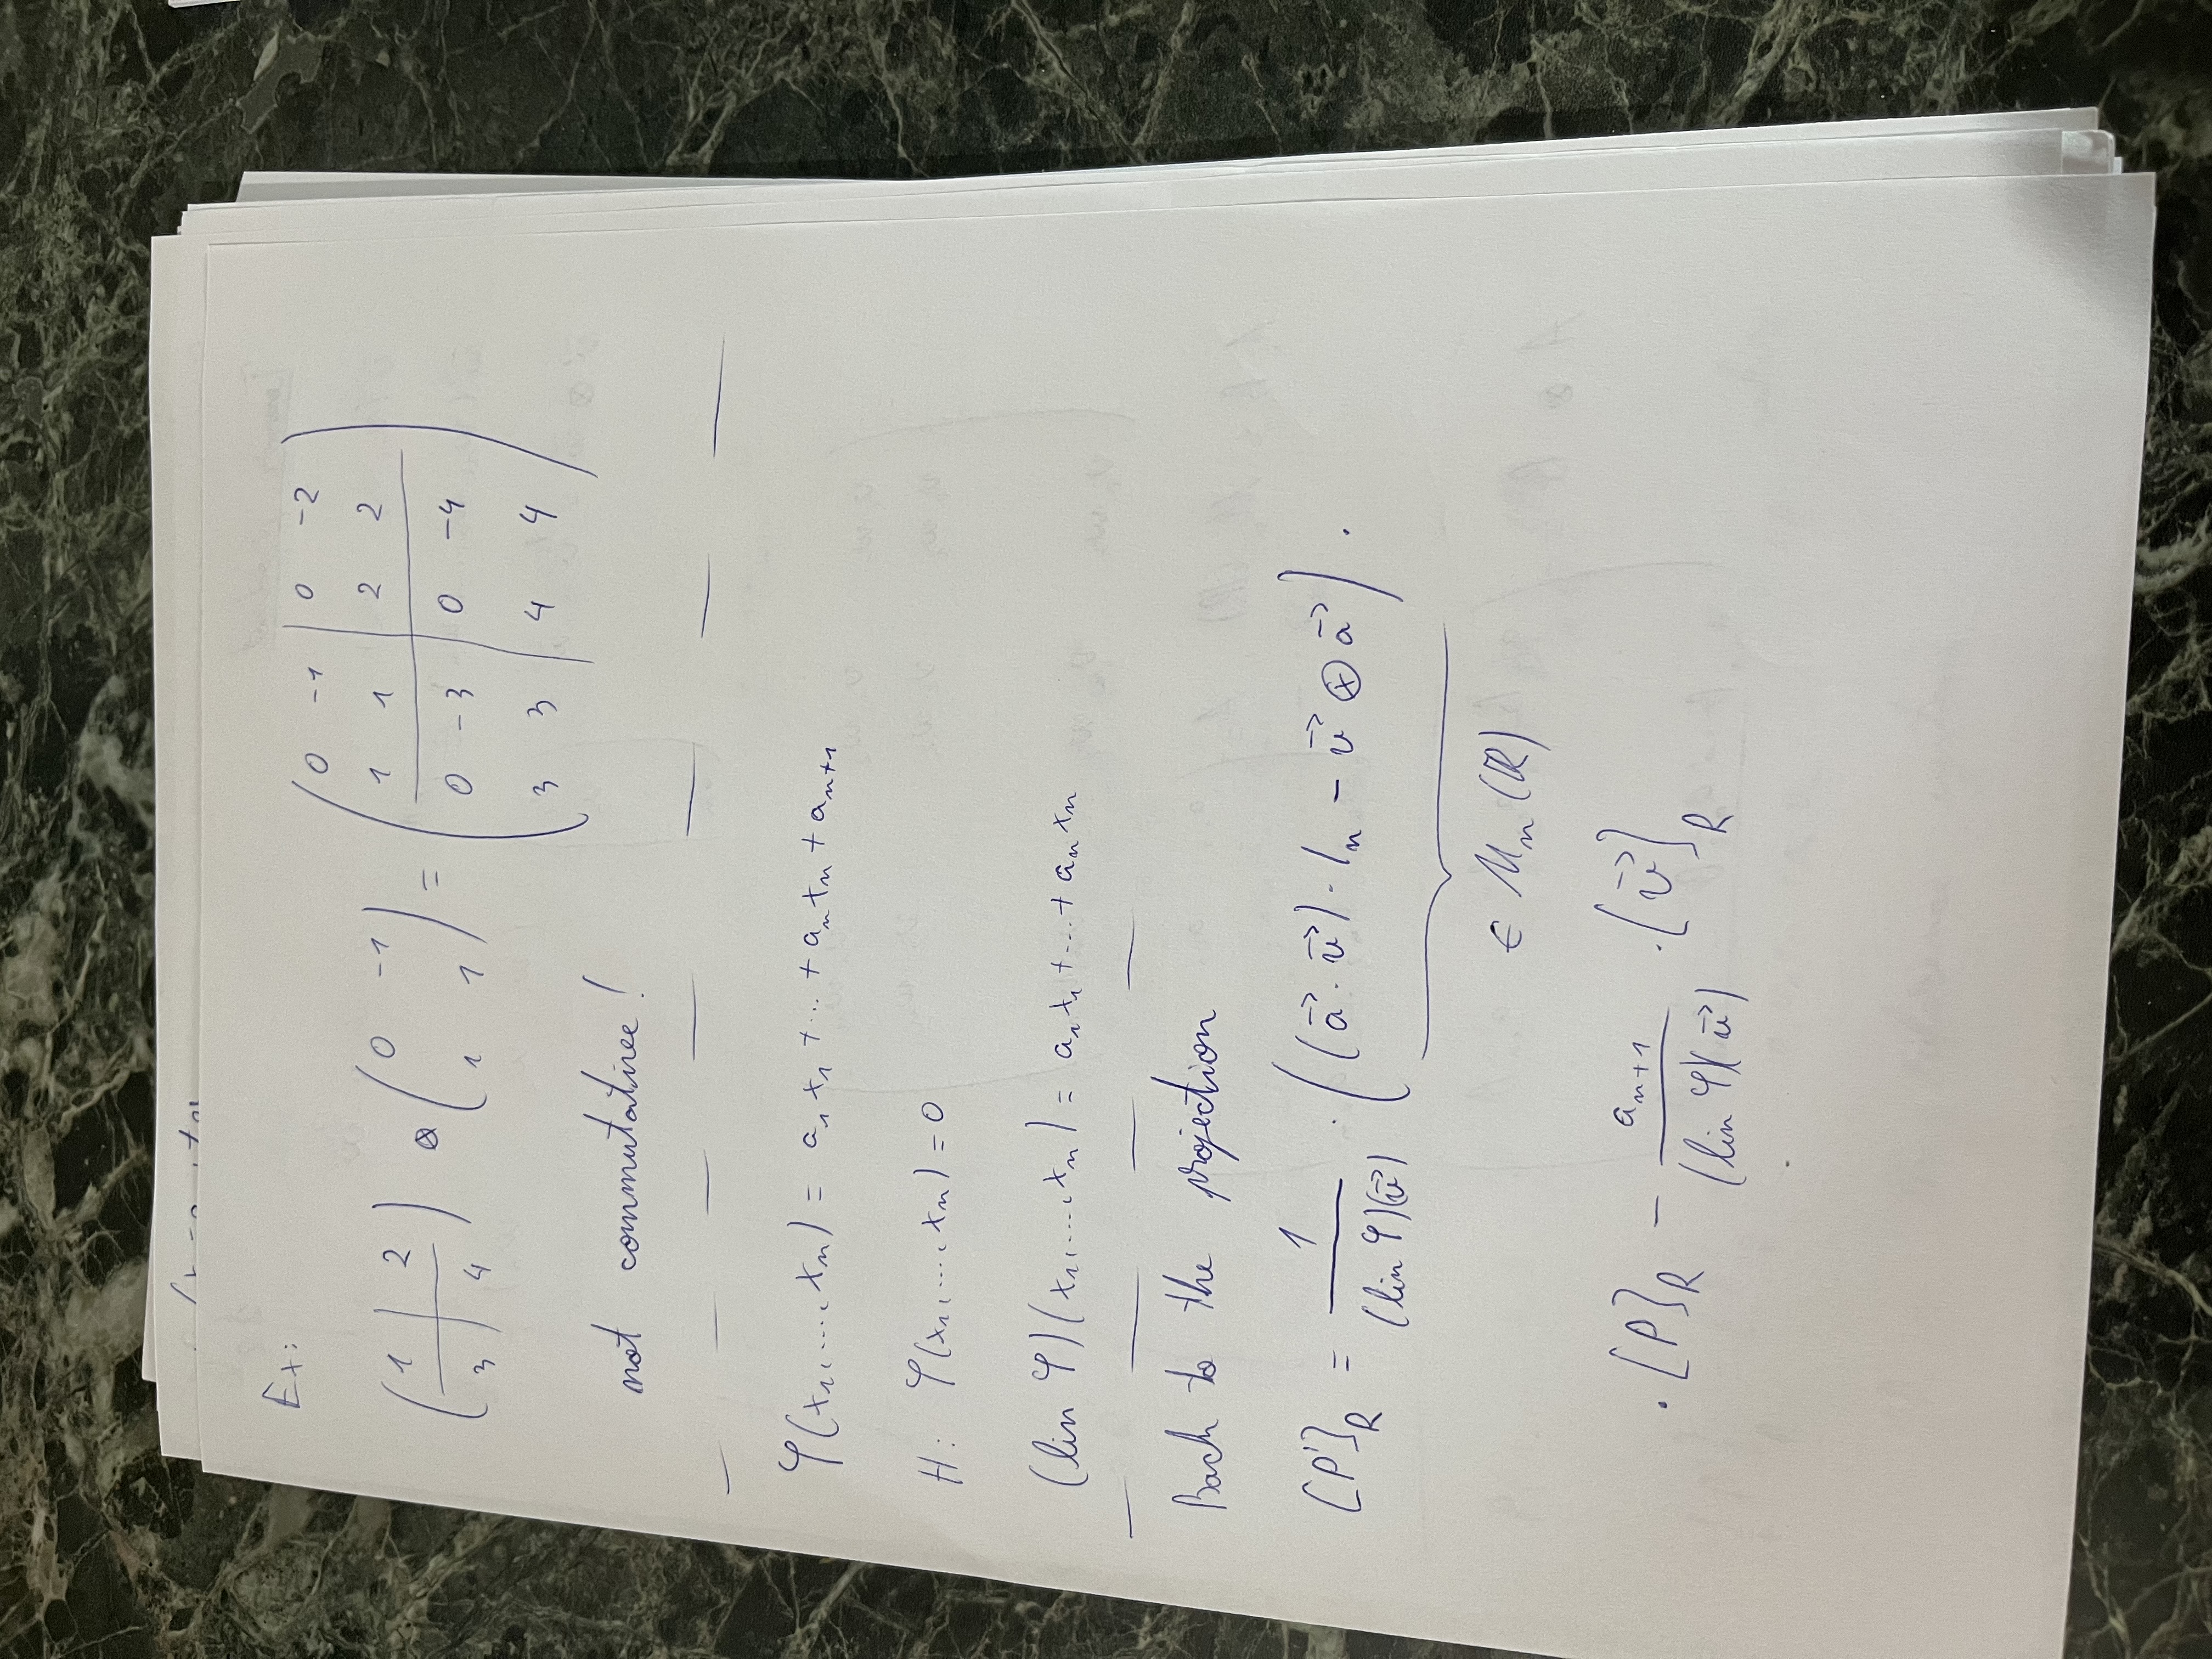 Ex:
( 1 | 2 / 3 | 4 ) ⊗ ( 0 -1 / 1 1 ) = ( 0 -1 | 0 -2 / 1 1 | 2 2 / 0 -3 | 0 -4 / 3 3 | 4 4 )
not commutative!
φ(x₁,...,xₙ) = a₁x₁ + ... + aₙxₙ + aₙ₊₁
H: φ(x₁,...,xₙ) = 0
(lin φ)(x₁,...,xₙ) = a₁x₁ + ... + aₙxₙ
Back to the projection
[P']_R = 1 / (lin φ)(v⃗) · ( (a⃗ · v⃗) · Iₙ − v⃗ ⊗ a⃗ ) ·
∈ Mₙ(ℝ)
· [P]_R − aₙ₊₁ / (lin φ)(v⃗) · [v⃗]_R